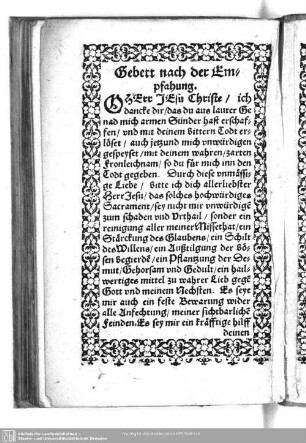 Gebett nach der Em-
pfahung.
O HErr JEsu Christe / ich
dancke dir / das du aus lauter Ge
nad mich armen Sünder hast erschaf-
fen / vnd mit deinem bittern Todt er-
löset / auch jetzund mich vnwürdigen
gespeyset / mit deinem wahren / zarten
Fronleichnam / so du für mich inn den
Todt gegeben. Durch diese vnmässi-
ge Liebe / bitte ich dich allerliebster
Herr Jesu / das solches hochwürdiges
Sacrament / sey nicht mir vnwürdigē
zum schaden vnd Vrthail / sonder ein
reinigung aller meiner Missethat / ein
Stärckung des Glaubens / ein Schilt
des Willens / ein Außtilgung der bö-
sen begierdē / ein Pflantzung der De-
mut / Gehorsam vnd Gedult / ein hail-
wertiges mittel zu wahrer Lieb gegē
Gott vnd meinem Nechsten. Es seye
mir auch ein feste Bewarung wider
alle Anfechtung / meiner sichtbarlichē
Feinden. Es sey mir ein kräfftige hilff
deinen